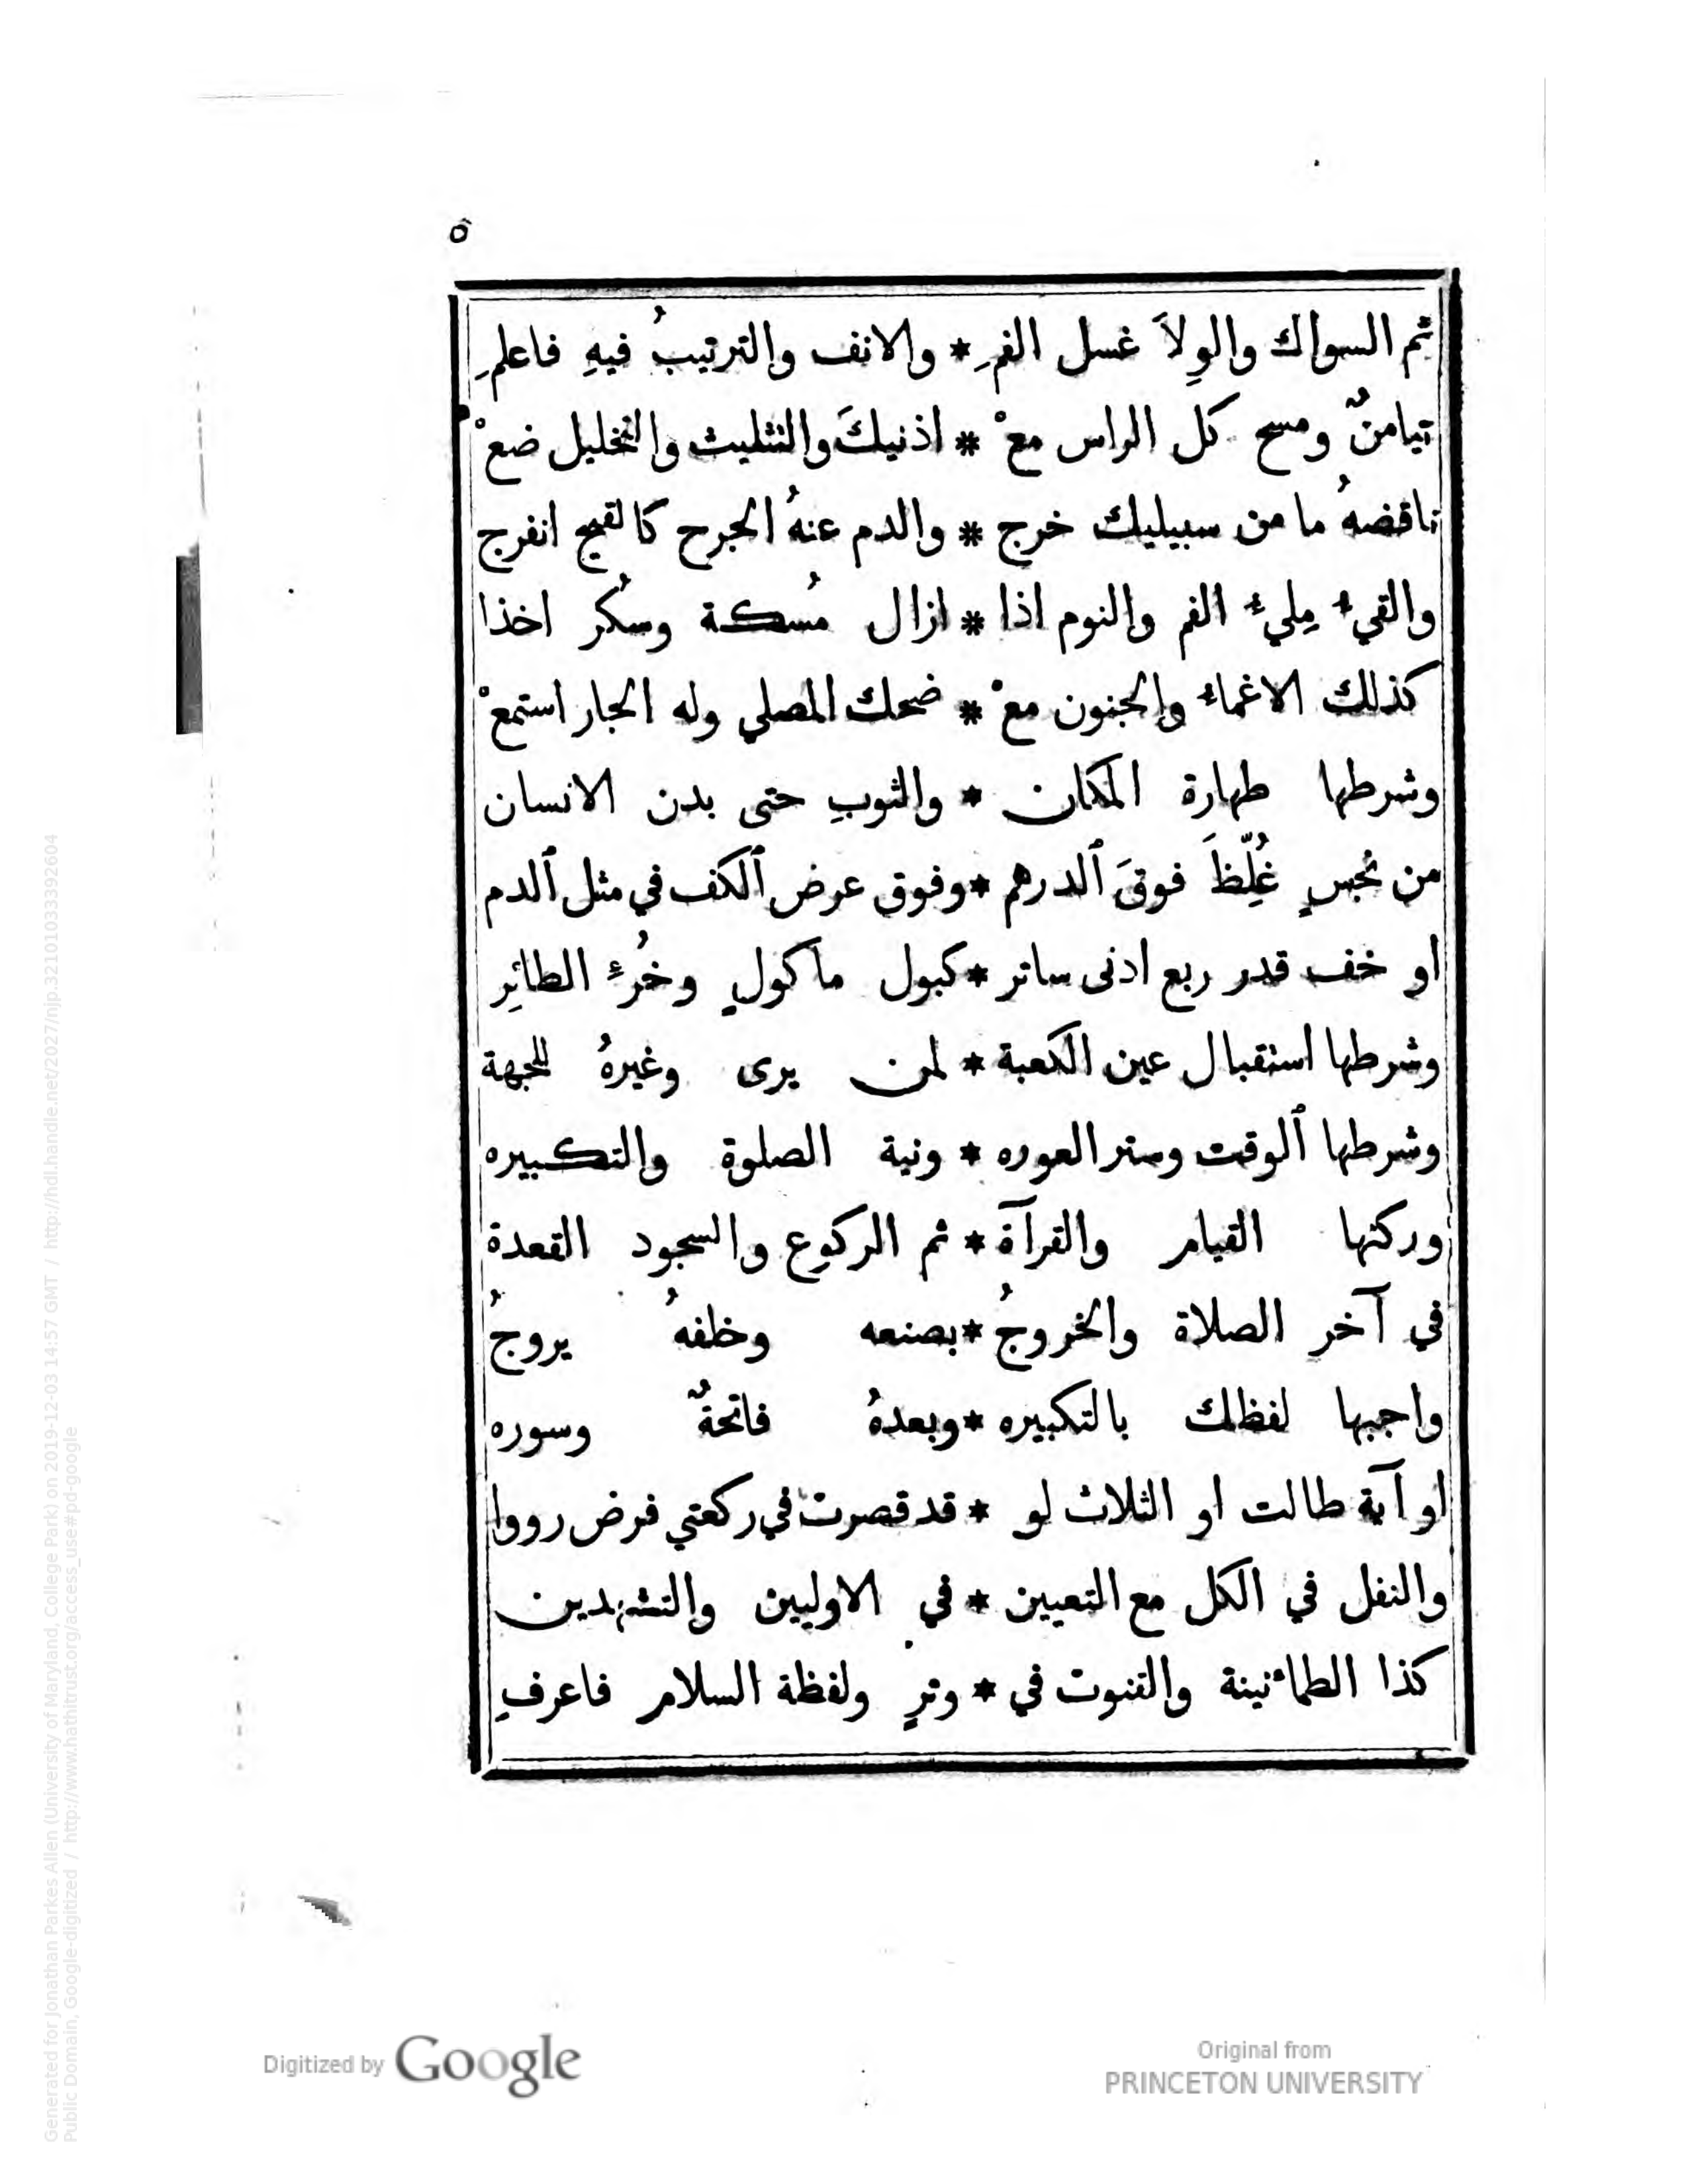 ٥
ثم السواك والوِلاَ غسل الفمِ * والانف والترتيبُ فيهِ فاعلمِ
تيامنٌ ومسح كل الراس معْ * اذنيكَ والتثليث والتخليل ضعْ
ناقضهُ ما من سبيليك خرج * والدم عنهُ الجرح كالقيح انفرج
والقيء مِليءِ الفم والنوم اذا * ازال مُسكة وسُكر اخذا
كذلك الاغماء والجنون معْ * ضحك المصلي وله الجار استمعْ
وشرطها طهارة المكان * والثوبِ حتى بدن الانسان
من نجسٍ غُلِّظَ فوقَ ٱلدرهم * وفوق عرض ٱلكف في مثل ٱلدم
او خف قدر ربع ادنى ساتر * كبول ماكولٍ وخُرءِ الطائِر
وشرطها استقبال عين الكعبة * لمن يرى وغيرهُ للجهة
وشرطها ٱلوقت وستر العوره * ونية الصلوة والتكبيره
وركنها القيام والقرآة * ثم الركوع والسجود القعدة
في آخر الصلاة والخروجُ * بصنعه وخلفهُ يروجُ
واجبها لفظك بالتكبيره * وبعدهُ فاتحةٌ وسوره
او آية طالت او الثلاث لو * قد قصرت في ركعتي فرض رووا
والنفل في الكل مع التعيين * في الاوليين والتشهدين
كذا الطمأنينة والقنوت في * وترٍ ولفظة السلام فاعرفِ
Digitized by Google
Original from
PRINCETON UNIVERSITY
Generated for Jonathan Parkes Allen (University of Maryland, College Park) on 2019-12-03 14:57 GMT / http://hdl.handle.net/2027/njp.32101033392604
Public Domain, Google-digitized / http://www.hathitrust.org/access_use#pd-google